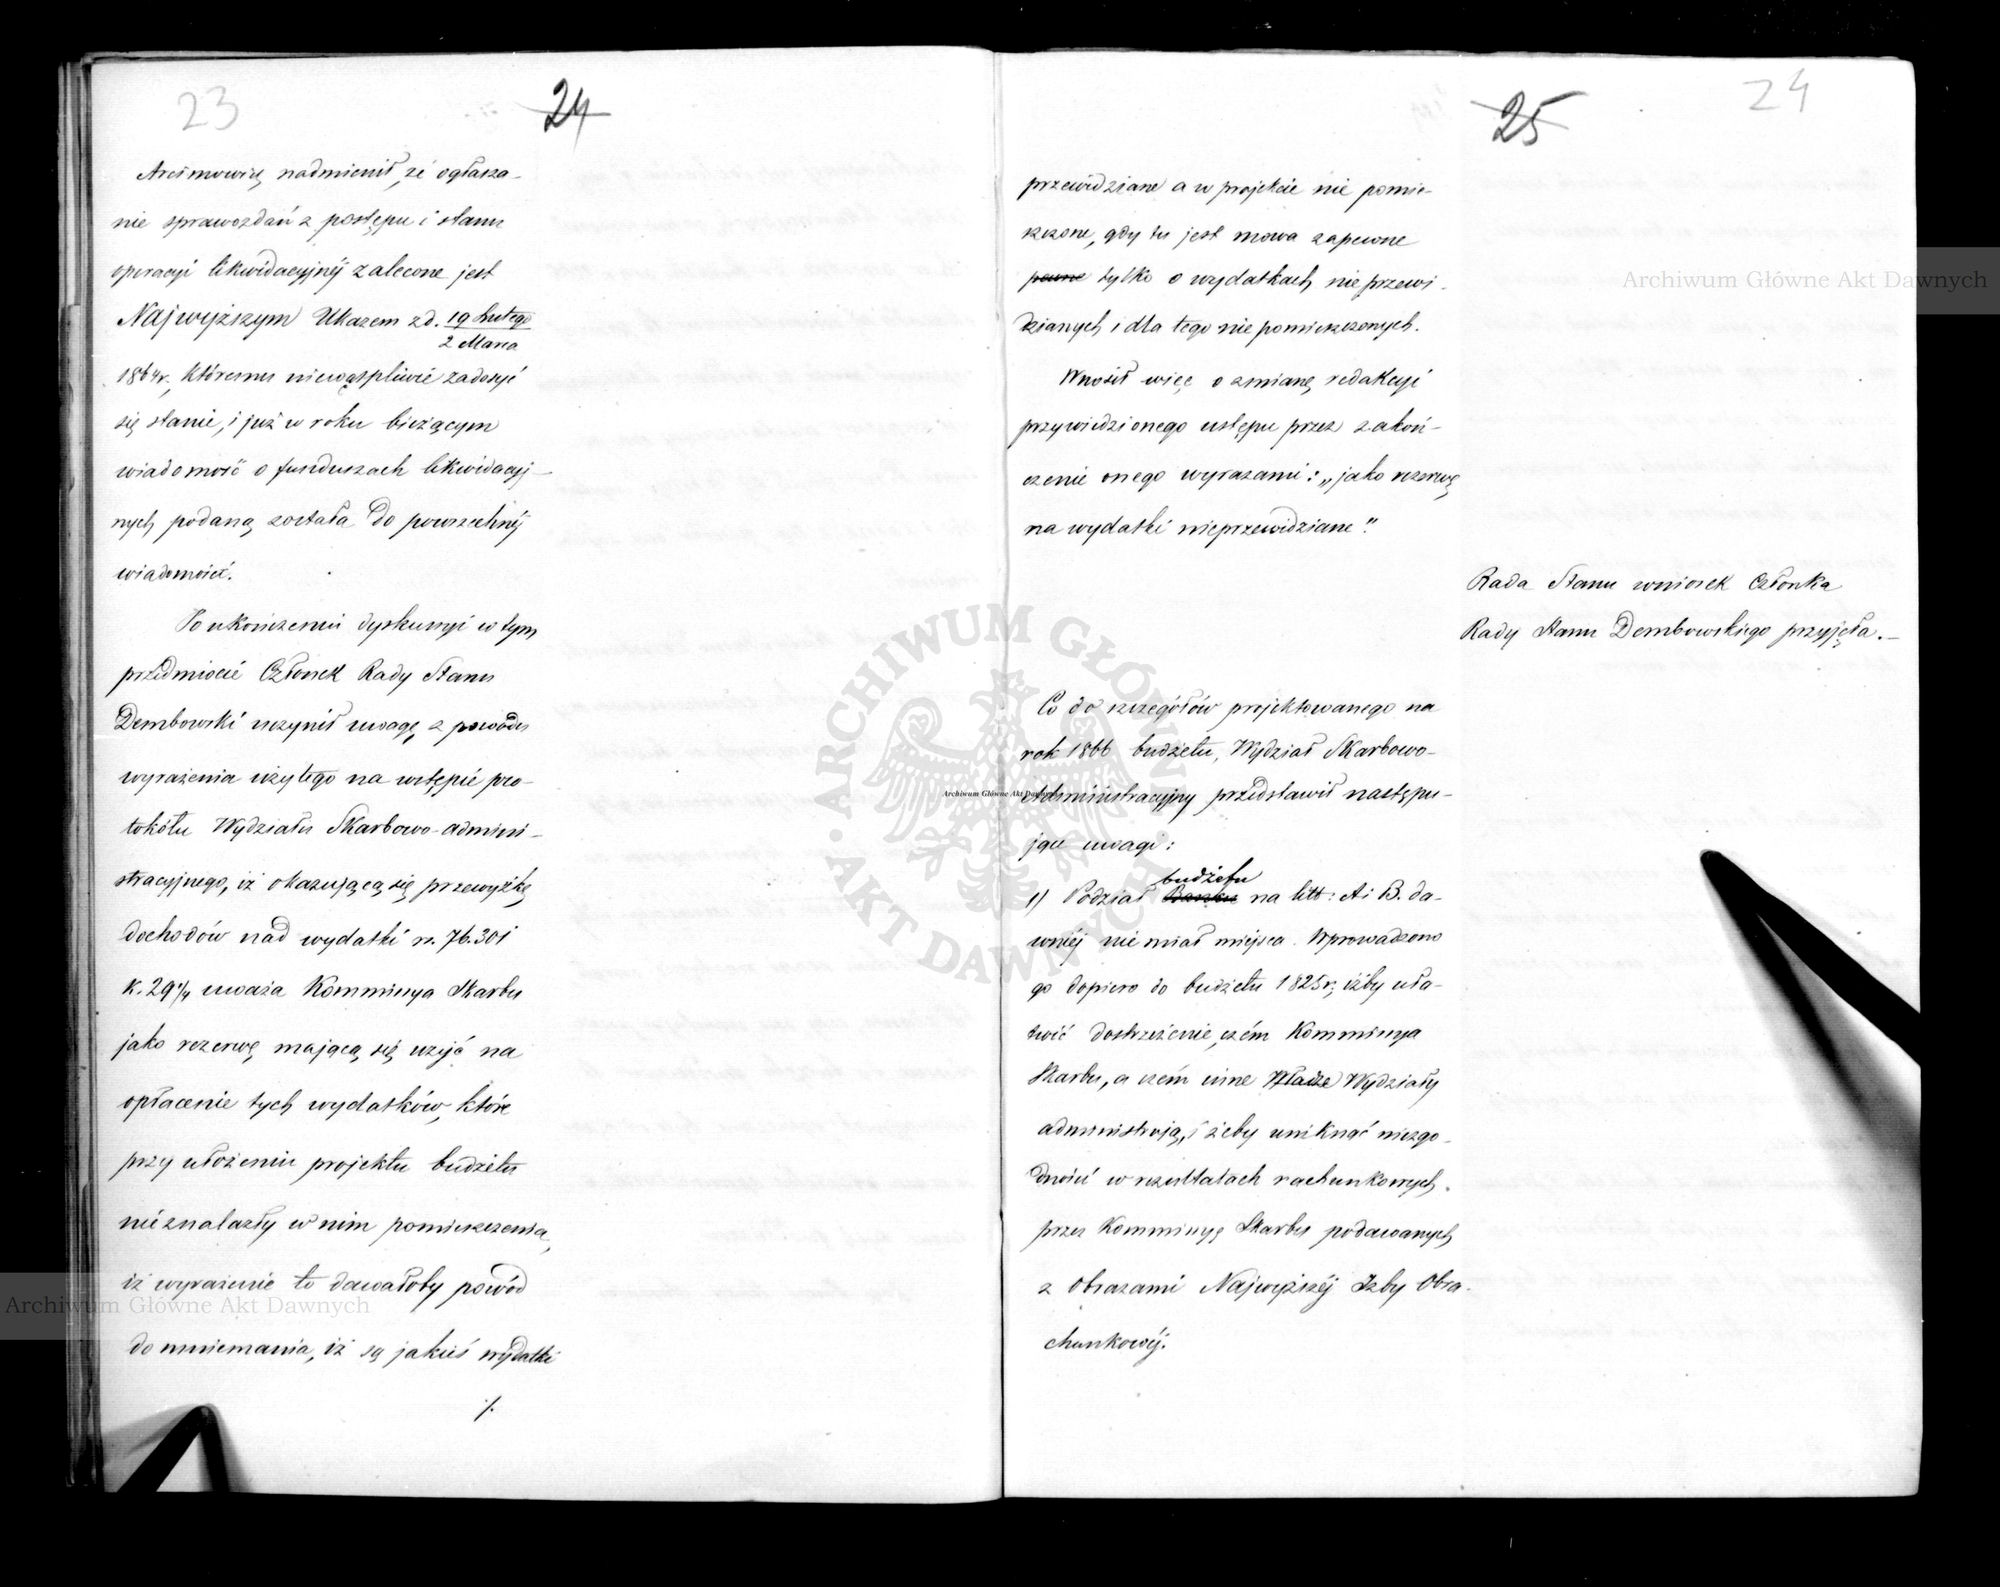 23
24
Arcimowicz nadmienił, że ogłasza-
nie sprawozdań z postępu i stanu
operacyi likwidacyjnéj zalecone jest
Najwyższym Ukazem z d. 19 Lutego
2 Marca
1864 r., któremu niewątpliwie zadosyć
się stanie, i już w roku bieżącym
wiadomość o funduszach likwidacyj-
nych podaną została do powszechnéj
wiadomości.
Po ukończeniu dyskussyi w tym
przedmiocie Członek Rady Stanu
Dembowski uczynił uwagę, z powodu
wyrażenia użytego na wstępie pro-
tokółu Wydziału Skarbowo-admini-
stracyjnego, iż okazującą się przewyżkę
dochodów nad wydatki rs. 76.301
k. 29 1/4 uważa Kommissya Skarbu
jako rezerwę mającą się użyć na
opłacenie tych wydatków, które
przy ułożeniu projektu budżetu
nie znalazły w nim pomieszczenia,
iż wyrażenie to dawałoby powód
do mniemania, iż są jakieś wydatki
./.
25
24
przewidziane a w projekcie nie pomie-
szczone, gdy tu jest mowa zapewne
pewne tylko o wydatkach nieprzewi-
dzianych i dla tego niepomieszczonych.
Wnosił więc o zmianę redakcyi
przywiedzionego ustępu przez zakoń-
czenie onego wyrazami: „jako rezerwę
na wydatki nieprzewidziane."
Rada Stanu wniosek Członka
Rady Stanu Dembowskiego przyjęła.-
Co do szczegółów projektowanego na
rok 1866 budżetu, Wydział Skarbowo-
Administracyjny przedstawił następu-
jące uwagi:
budżetu
1) Podział Banku na litt: A i B. da-
wniéj nie miał miejsca. Wprowadzono
go dopiero do budżetu 1825 r., iżby uła-
twić dostrzeżenie, czém Kommissya
Skarbu, a czém inne Władze Wydziały
administrują, i żeby uniknąć niezgo-
dności w rezultatach rachunkowych
przez Kommissyę Skarbu podawanych
z Obrazami Najwyższéj Izby Obra-
chunkowéj.
Archiwum Główne Akt Dawnych
Archiwum Główne Akt Dawnych
Archiwum Główne Akt Dawnych
ARCHIWUM GŁÓWNE AKT DAWNYCH